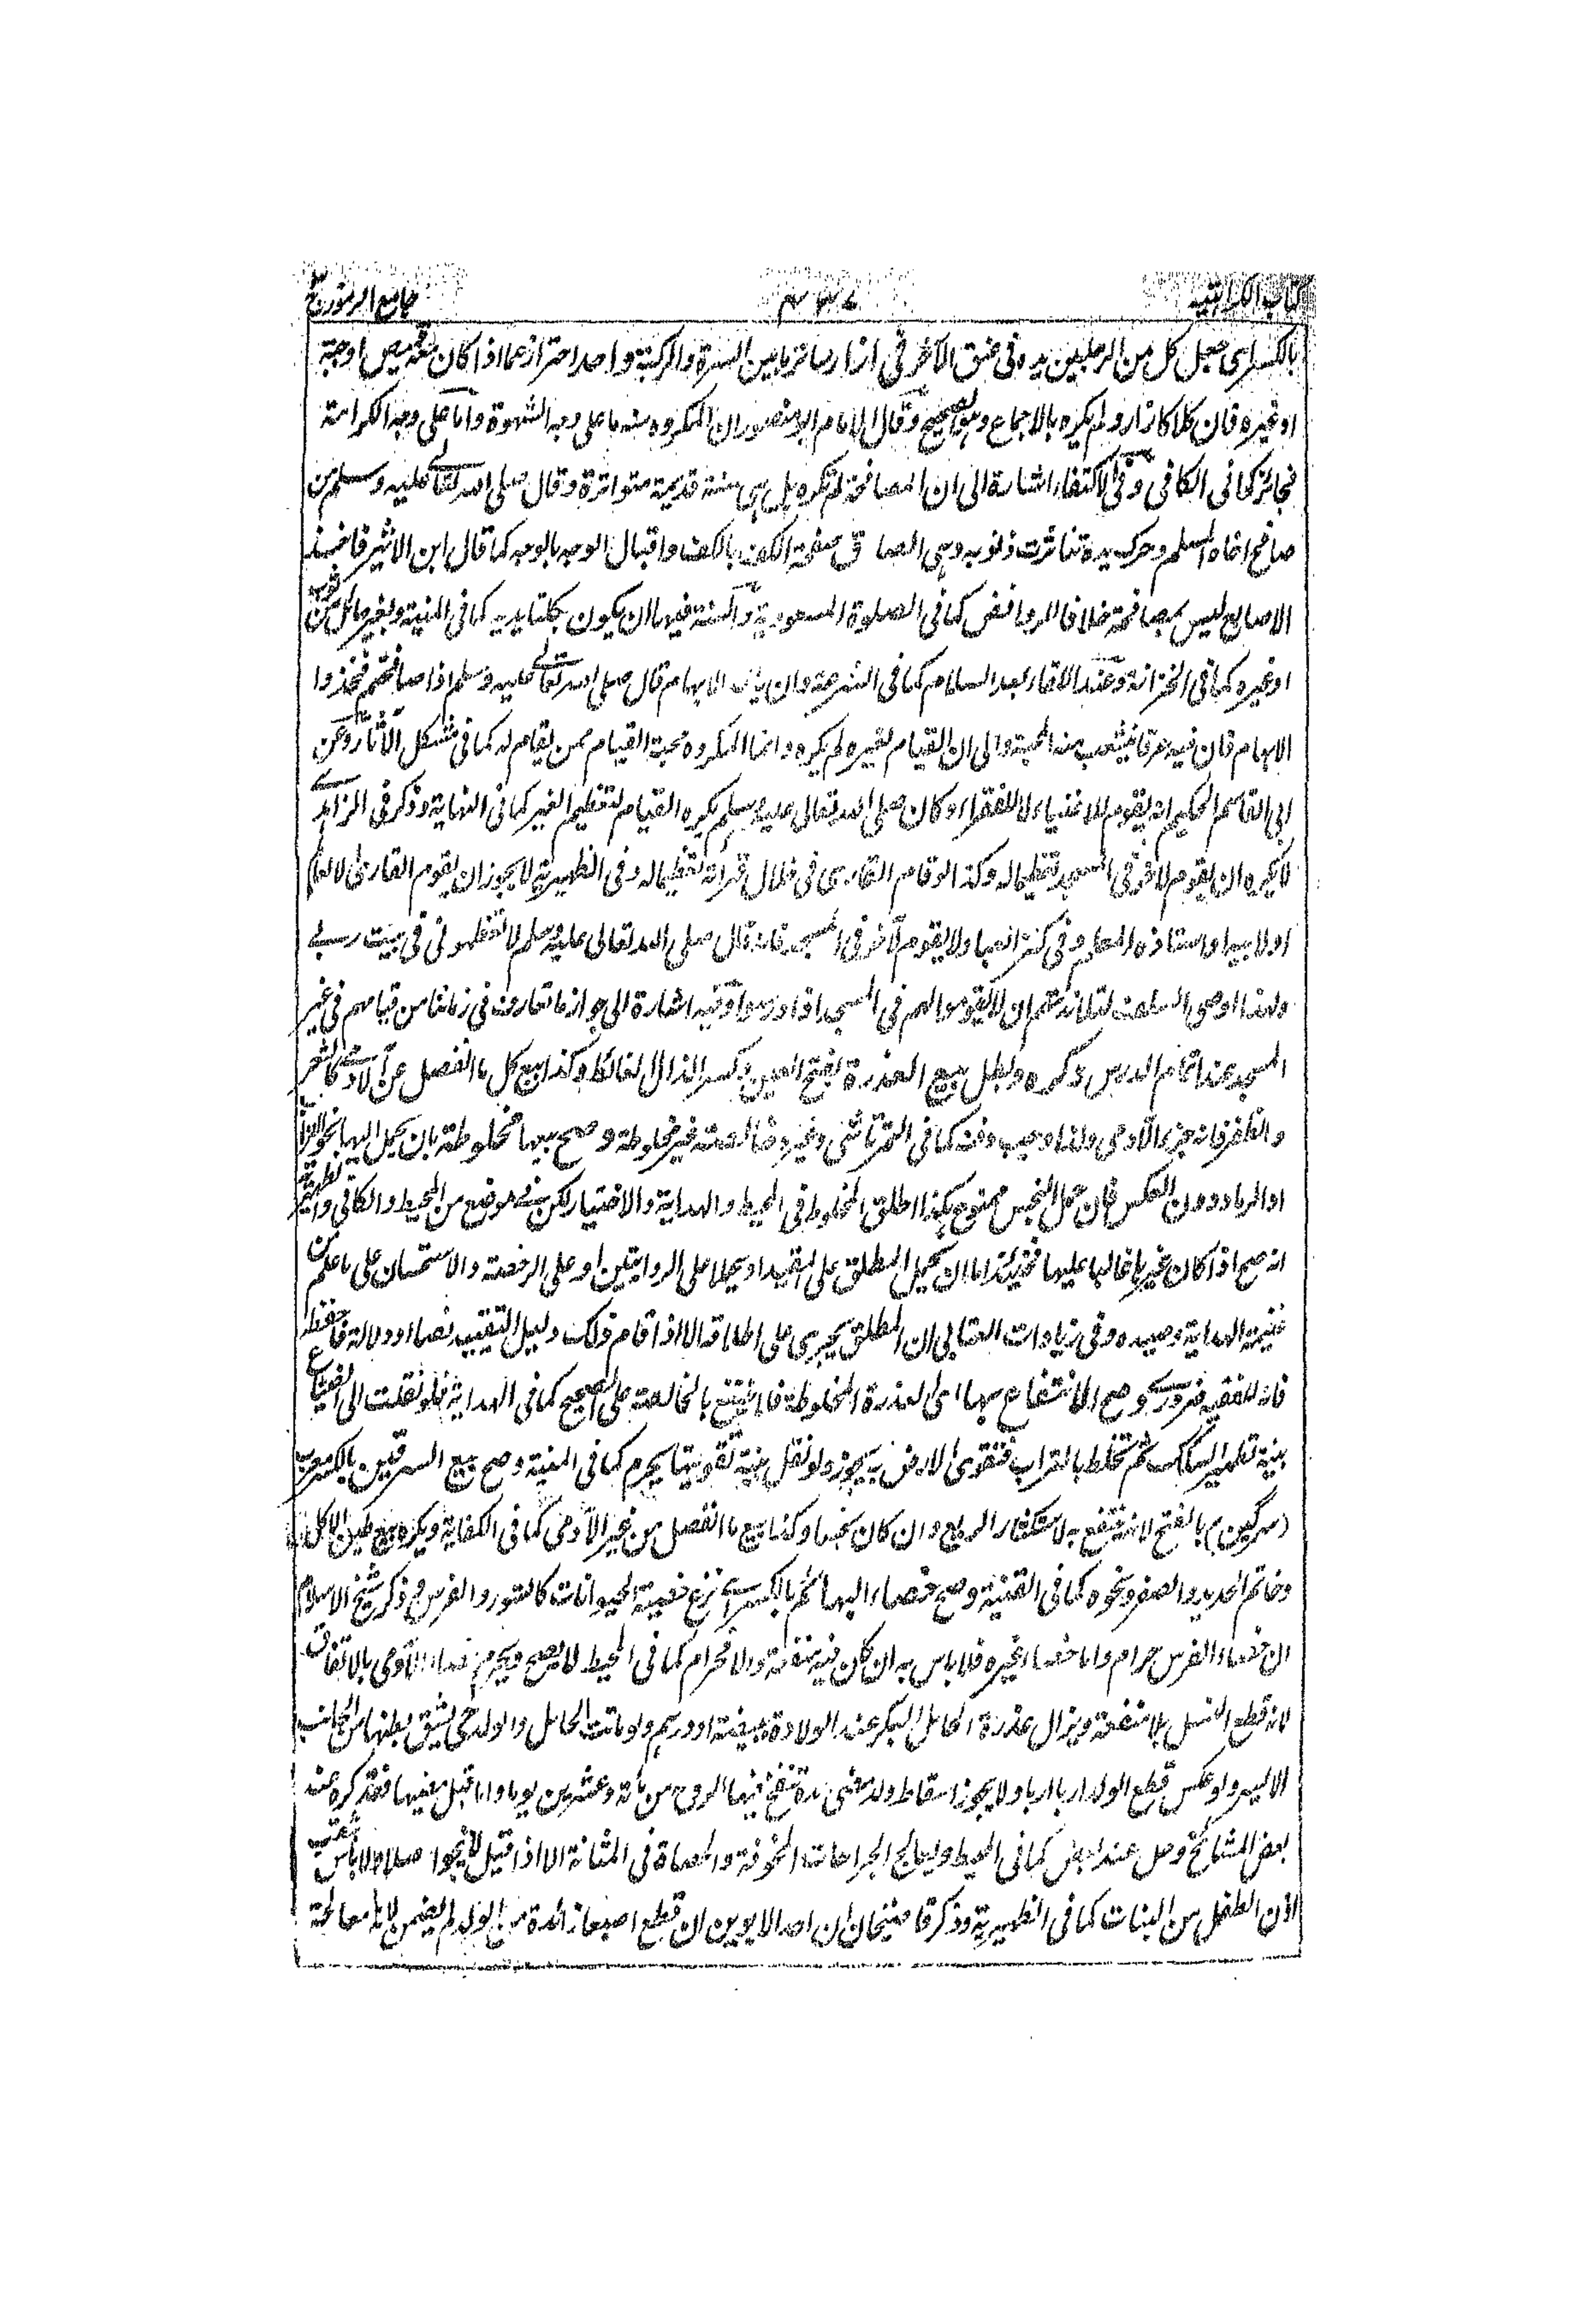 كتاب الكراهية
جامع الرموز ج
بالكسر اى جعل كل من الرجلين يده فى عنق الآخر فى ازار ساتر ما بين السرة والركبة واحد احتراز عما اذا كان معه قميص او جبة
او غيره فان كلا كازار ولم يكره بالاجماع وهو الصحيح وقال الامام ابو منصور ان المكروه منه ما على وجه الشهوة واما على وجه الكرامة
فجائز كما فى الكافى وفى الاكتفاء اشارة الى ان المصافحة لم تكره بل هى سنة قديمة متواترة وقال صلى الله تعالى عليه وسلم من
صافح اخاه المسلم وحرك يده تناثرت ذنوبه وهى الصاق صفحة الكف بالكف واقبال الوجه بالوجه كما قال ابن الاثير فاخذ
الاصابع ليس بمصافحة خلافا للروافض كما فى الصلوة المسعودية والسنة فيها ان يكون بكلتا يديه كما فى المنية وبغير حائل من ثوب
او غيره كما فى الخزانة وعند اللقاء بعد السلام كما فى الشرعة وان ياخذ الابهام قال صلى الله تعالى عليه وسلم اذا صافحتم فخذوا
الابهام فان فيه عرقا ينشعب منه المحبة والى ان القيام لغيره لم يكره وانما المكروه محبة القيام ممن يقام له كما فى مشكل الآثار وعن
ابى القاسم الحكيم انه يقوم للاغنياء لا للفقراء وكان صلى الله تعالى عليه وسلم يكره القيام لتعظيم الغير كما فى النهاية وذكر فى الزاهدى
لا يكره ان يقوم لآخر فى المسجد تعظيما له وكذا لو قام القارى فى خلال قرائة تعظيما له وفى الظهيرية لا يجوز ان يقوم القارى الا لعالم
او لابيه او استاذه المعلم وفى كنز العباد لا يقوم لآخر فى المسجد فانه قال صلى الله تعالى عليه وسلم لا تعظمونى فى بيت ربى
ولهذا اوصى السلف لتلامذتهم ان لا يقوموا لهم فى المسجد اذا درسوا وفيه اشارة الى جواز ما تعارف فى زماننا من قيامهم فى غير
المسجد عند اتمام الدرس وكره وبطل بيع العذرة بفتح العين وكسر الذال الغائط وكذا بيع كل ما انفصل عن الآدمى كالشعر
والظفر فانه جزء الآدمى ولذا وجب دفنه كما فى التمرتاشى وغيره خالصة غير مخلوطة وصح بيعها مخلوطة بان يحمل اليها نحو التراب
او الرماد دون العكس فان حمل النجس ممنوع هكذا اطلق المخلوط فى المحيط والهداية والاختيار لكن فى موضع من المحيط والكافى والظهيرية
انه صح اذا كان غيرها غالبا عليها فحينئذ اما ان يحمل المطلق على المقيد او يحملا على الروايتين او على الرخصة والاستحسان على ما علم من
غنيمة الهداية وصيده وفى زيادات العتابى ان المطلق يجرى على اطلاقه الا اذا قام ذلك دليل التقييد نصا او دلالة فاحفظه
فانه للفقيه ضرورى وصح الانتفاع بها اى العذرة المخلوطة فلا ينتفع بالخالصة على الصحيح كما فى الهداية فلو نقلت الى الضياع
بنية تطهير السكك ثم تخلط بالتراب فتقوى الارض به يجوز ولو نقل بنية تقويتها يحرم كما فى المنية وصح بيع السرقين بالكسر معرب
(سرگين) بالفتح لانه ينتفع به لاستكثار الريع وان كان نجسا وكذا بيع ما انفصل من غير الآدمى كما فى الكفاية ويكره بيع طين الاكل
وخاتم الحديد والصفر ونحوه كما فى القنية وصح خصاء البهائم بالكسر اى نزع خصية الحيوانات كالثور والفرس وذكر شيخ الاسلام
ان خصاء الفرس حرام واما خصاء غيره فلا باس به ان كان فيه منفعة والا فحرام كما فى المحيط لا يصح ويحرم خصاء الآدمى بالاتفاق
لانه قطع النسل بلا منفعة ويزال عذرة الحامل البكر عند الولادة ببيضة او درهم ولو ماتت الحامل والولد حى يشق بطنها من الجانب
الايسر ولو عكس قطع الولد اربا اربا ولا يجوز اسقاط ولد مضى مدة ينفخ فيها الروح من مائة وعشرين يوما واما قبل مضيها فقد كره عند
بعض المشائخ وحل عند بعض كما فى المحيط ويعالج الجراحات المخوفة والحصاة فى المثانة الا اذا قيل لا ينجوا اصلا ولا باس بثقب
اذن الطفل من البنات كما فى الظهيرية وذكر قاضيخان ان احد الابوين ان قطع اصبعا زائدة من الولد لم يضمن لانه معالجة